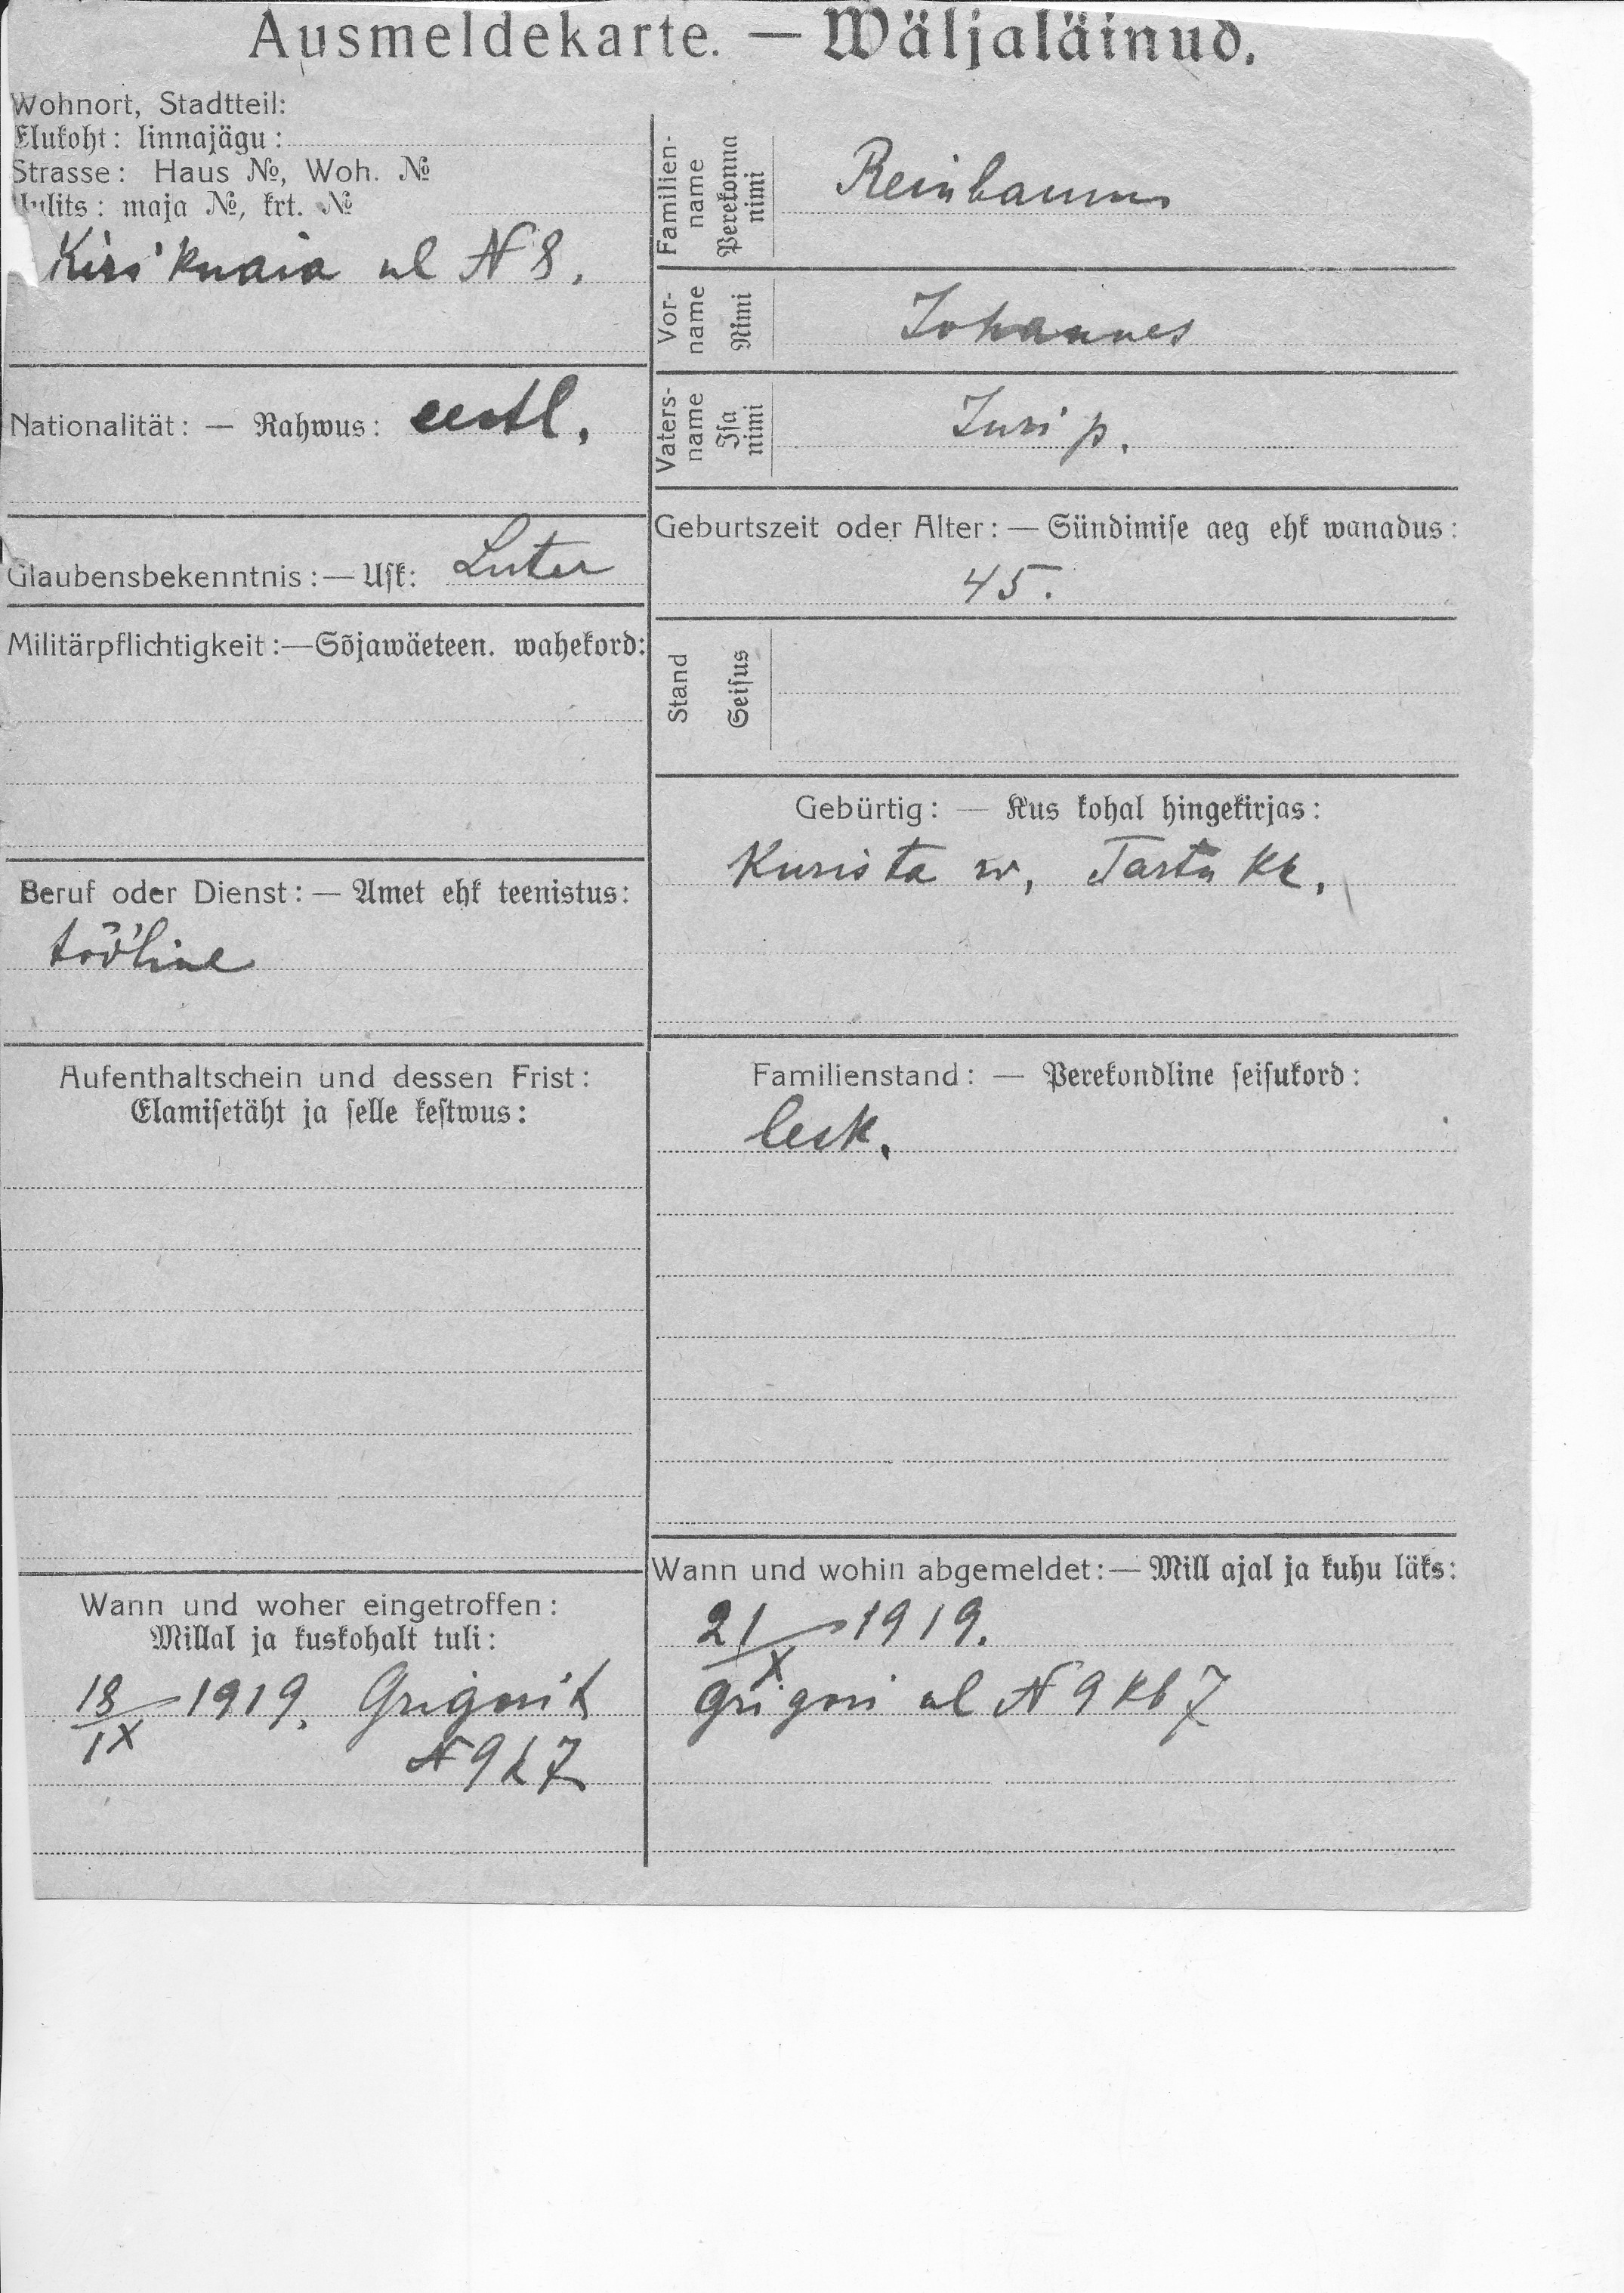 Ausmeldekarte. — Wäljaläinud.
Wohnort, Stadtteil:
Elukoht: linnajägu:
Strasse: Haus №, Woh. №
Uulits: maja №, krt. №
Kirikuaia ul N 8.
Nationalität: — Rahwus: eestl.
Glaubensbekenntnis:— Usk: Luter
Militärpflichtigkeit:—Sõjawäeteen. wahekord:
Beruf oder Dienst: — Amet ehk teenistus:
tööline
Aufenthaltschein und dessen Frist:
Elamisetäht ja selle kestwus:
Wann und woher eingetroffen:
Millal ja kuskohalt tuli:
18/IX 1919. Grigorit
N 9 k 7
Familien-
name
Perekonna
nimi
Reinbaum
Vor-
name
Nimi
Johannes
Vaters-
name
Isa
nimi
Juri p.
Geburtszeit oder Alter: — Sündimise aeg ehk wanadus:
45.
Stand
Seisus
Gebürtig: — Kus kohal hingekirjas:
Kurista w, Tartu kr.
Familienstand: — Perekondline seisukord:
lesk.
Wann und wohin abgemeldet:— Mill ajal ja kuhu läks:
21/X 1919.
Grigori ul N 9 kt 7